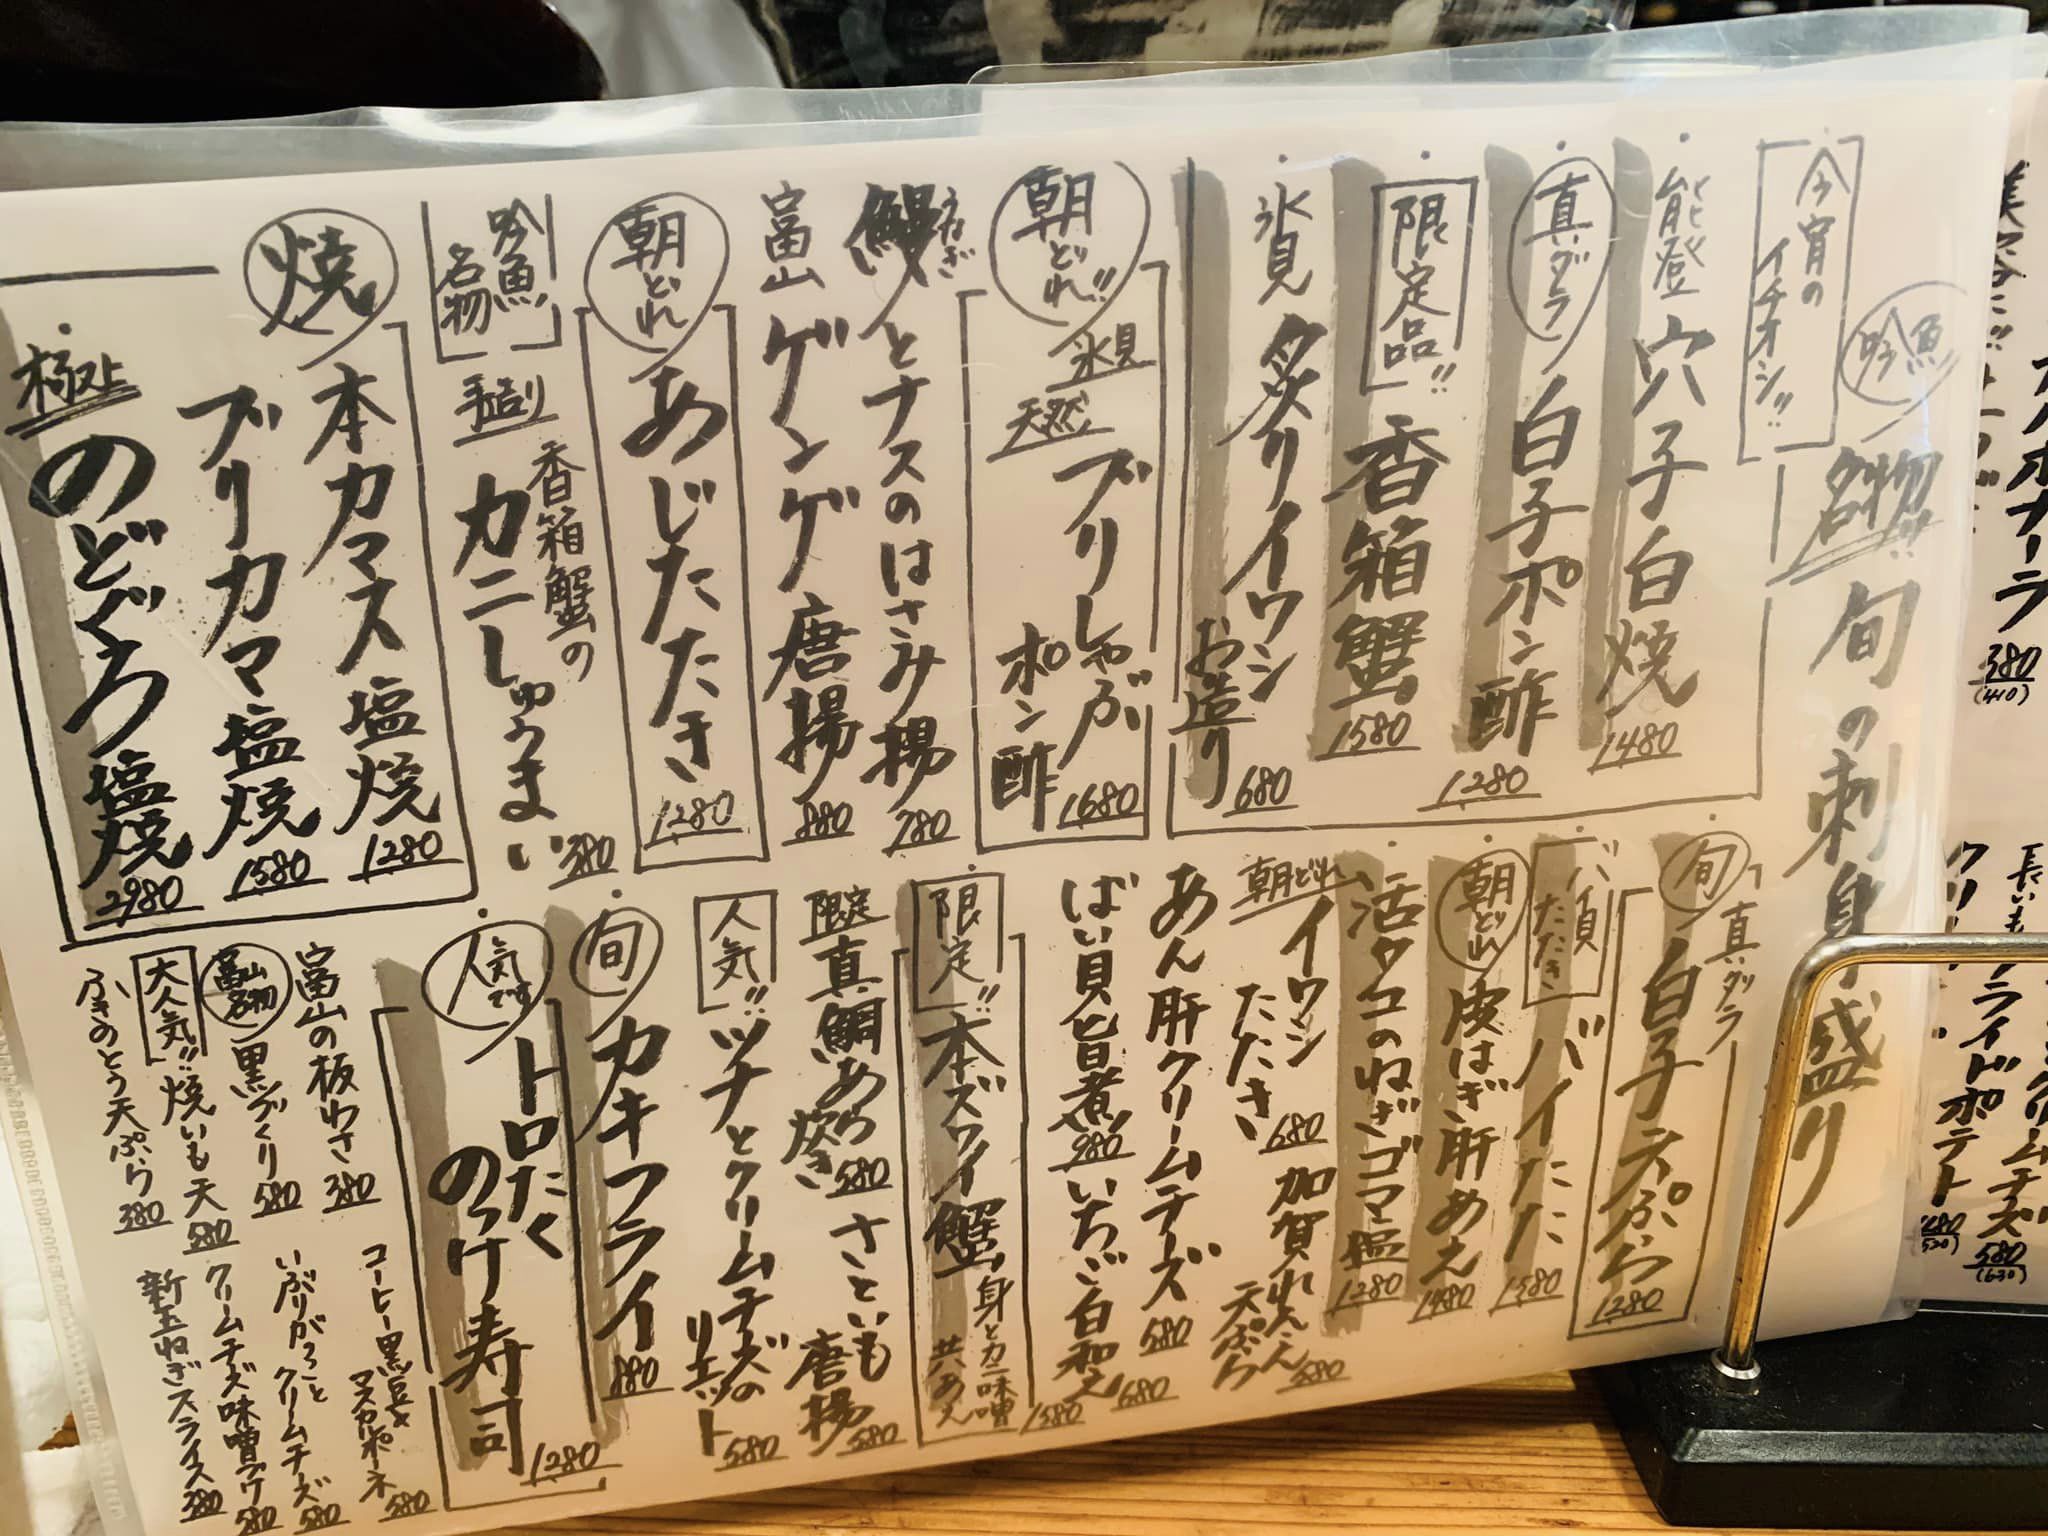 吟魚
名物!! 旬の刺身盛り
今宵の
イチオシ!!
能登 穴子白焼 1480
真ダラ 白子ポン酢 1280
限定品!! 香箱蟹 1580
氷見 炙りイワシ
お造り 680
朝どれ!! 氷見
天然 ブリしゃぶ 1680
ポン酢
うなぎ
鰻とナスのはさみ揚 780
富山 ゲンゲ唐揚 880
朝どれ あじたたき 1280
吟魚
名物
手造り
香箱蟹の
カニしゅうまい 380
焼 本カマス塩焼 1280
ブリカマ塩焼 1580
極上 のどぐろ塩焼 2980
旬 真ダラ
白子天ぷら 1280
バイ貝
たたき
バイたた 1580
朝どれ 皮はぎ肝あえ 1480
活タコのねぎゴマ塩 1280
朝どれ イワシ
たたき 680
加賀れんこん
天ぷら 580
あん肝クリームチーズ 580
ばい貝旨煮!! 980
いちご白和え 680
限定!! 本ズワイ蟹 身とカニ味噌
共あえ 1580
限定 真鯛あら
炊き 580
さといも
唐揚 580
人気!! ツナとクリームチーズの
リエット 580
旬 カキフライ 880
人気です トロたく
のっけ寿司 1280
富山の板わさ 380
富山
名物 黒づくり 580
大人気!! 焼いも天 580
ふきのとう天ぷら 380
コーヒー黒豆と
マスカルポーネ 580
いぶりがっこと
クリームチーズ 580
クリームチーズ味噌づけ 580
新玉ねぎスライス 380
380
(410)
フライドポテト
480
(520)
クリームチーズ 580
(630)